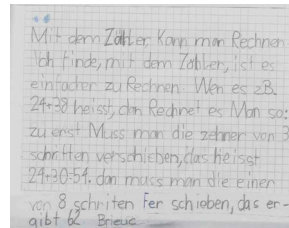 Mit dem Zähler, Kann man Rechnen
Ich finde, mit dem Zähler, ist es
einfacher zu Rechnen. Wen es zB.
24+38 heisst, dan Rechnet es Man so:
zu erst Muss man die zehner von 3
schritten verschieben, das heisst
24+30=54. dan muss man die einer
von 8 schriten fer schieben, das er-
gibt 62 Brieuc